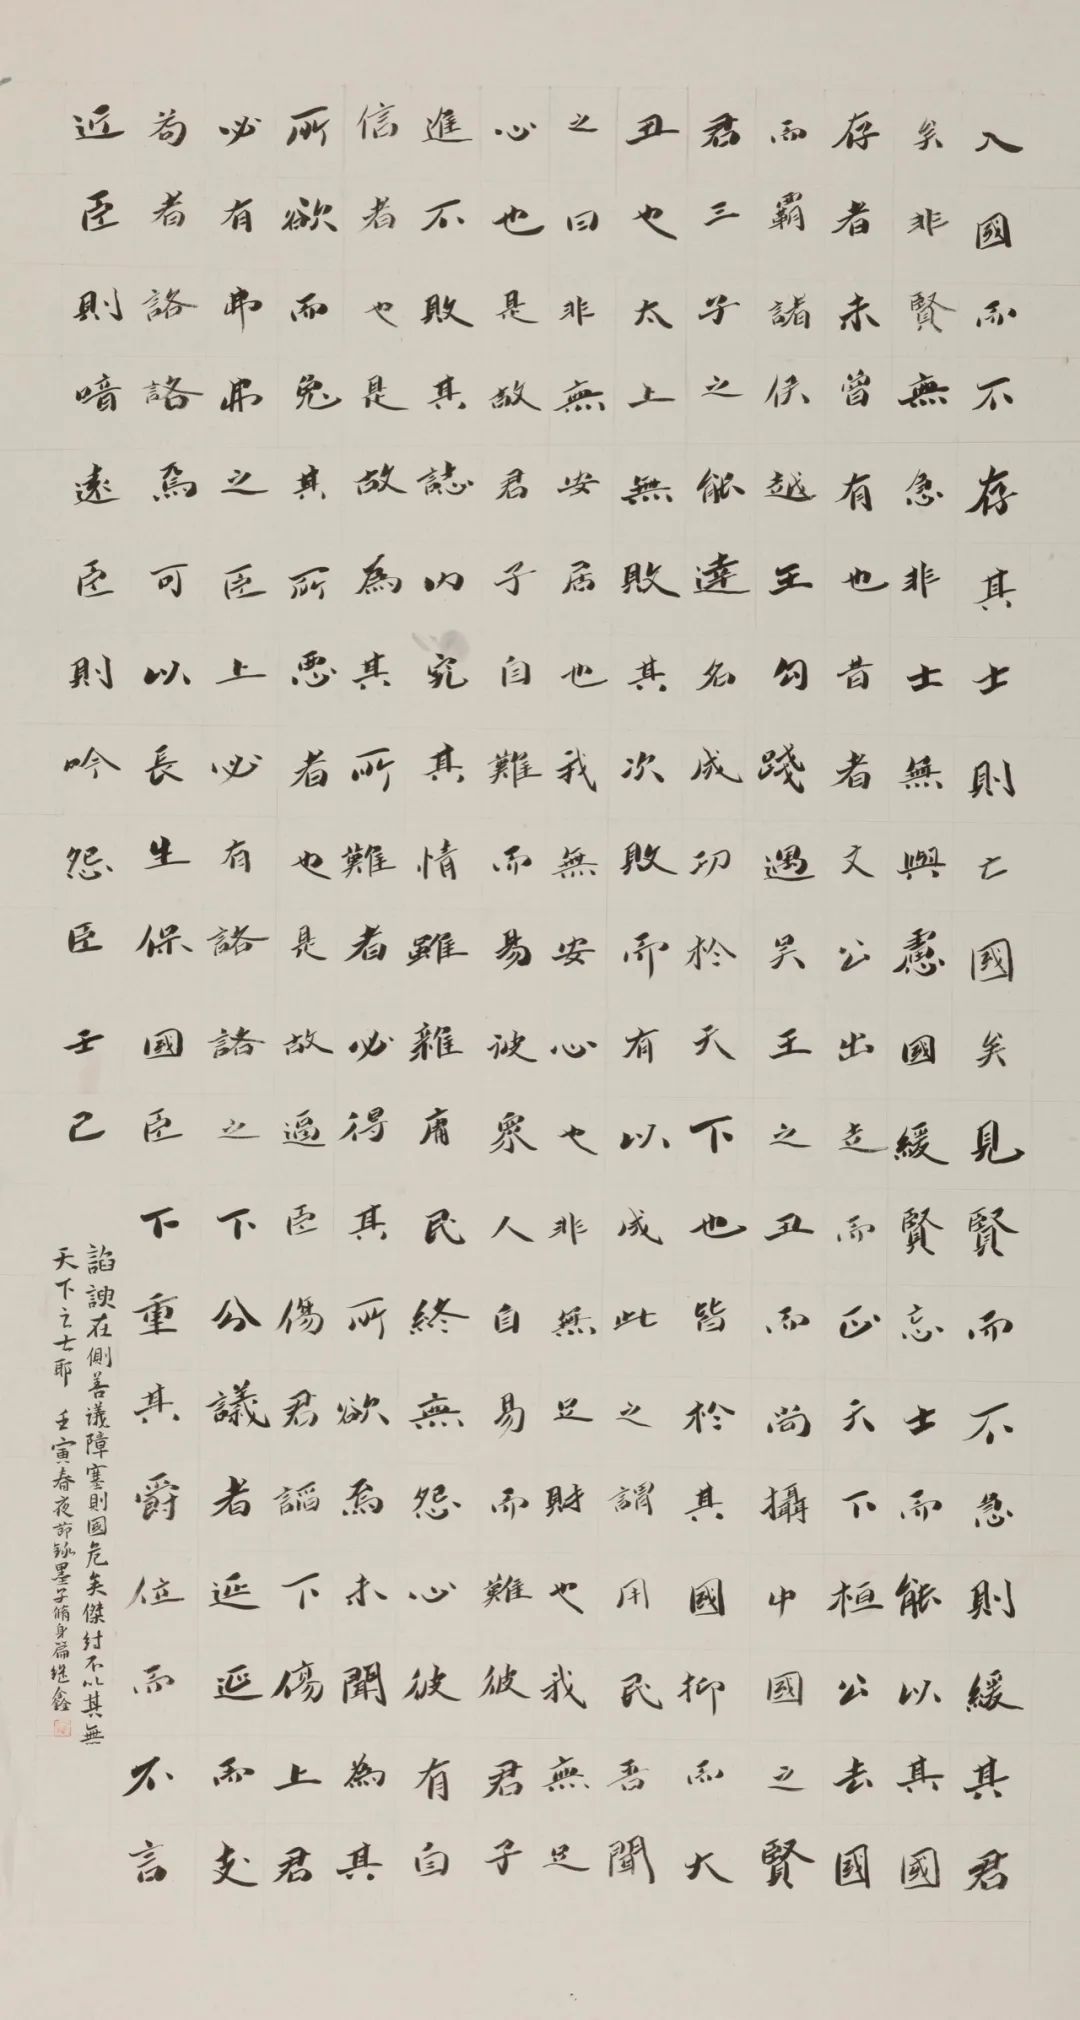 入國而不存其士則亡國矣見賢而不急則緩其君
矣非賢無急非士無與慮國緩賢忘士而能以其國
存者未曾有也昔者文公出走而正天下桓公去國
而霸諸侯越王勾踐遇吳王之丑而尚攝中國之賢
君三子之能達名成功於天下也皆於其國抑而大
丑也太上無敗其次敗而有以成此之謂用民吾聞
之曰非無安居也我無安心也非無足財也我無足
心也是故君子自難而易彼眾人自易而難彼君子
進不敗其誌內究其情雖雜庸民終無怨心彼有自
信者也是故為其所難者必得其所欲焉未聞為其
所欲而免其所惡者也是故逼臣傷君諂下傷上君
必有弗弗之臣上必有詻詻之下分議者延延而支
苟者詻詻焉可以長生保國臣下重其爵位而不言
近臣則喑遠臣則吟怨臣
諂諛在側善議障塞則國危矣傑紂不以其無
天下之士耶 壬寅春夜節錄墨子脩身篇继鑫